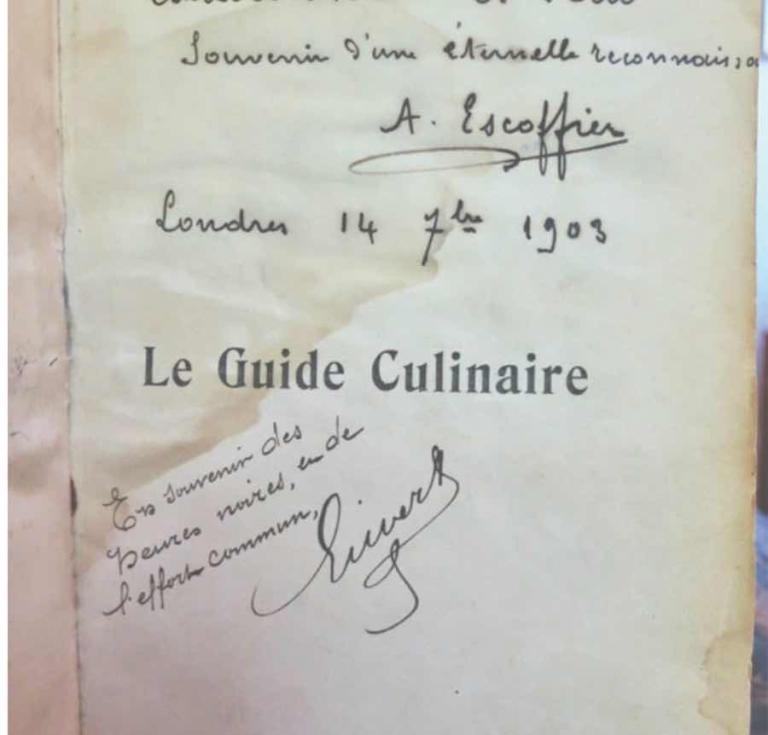 Souvenir d'une éternelle reconnaissa
A. Escoffier
Londres 14 7bre 1903
Le Guide Culinaire
En souvenir des
heures noires, en de
l'effort commun,